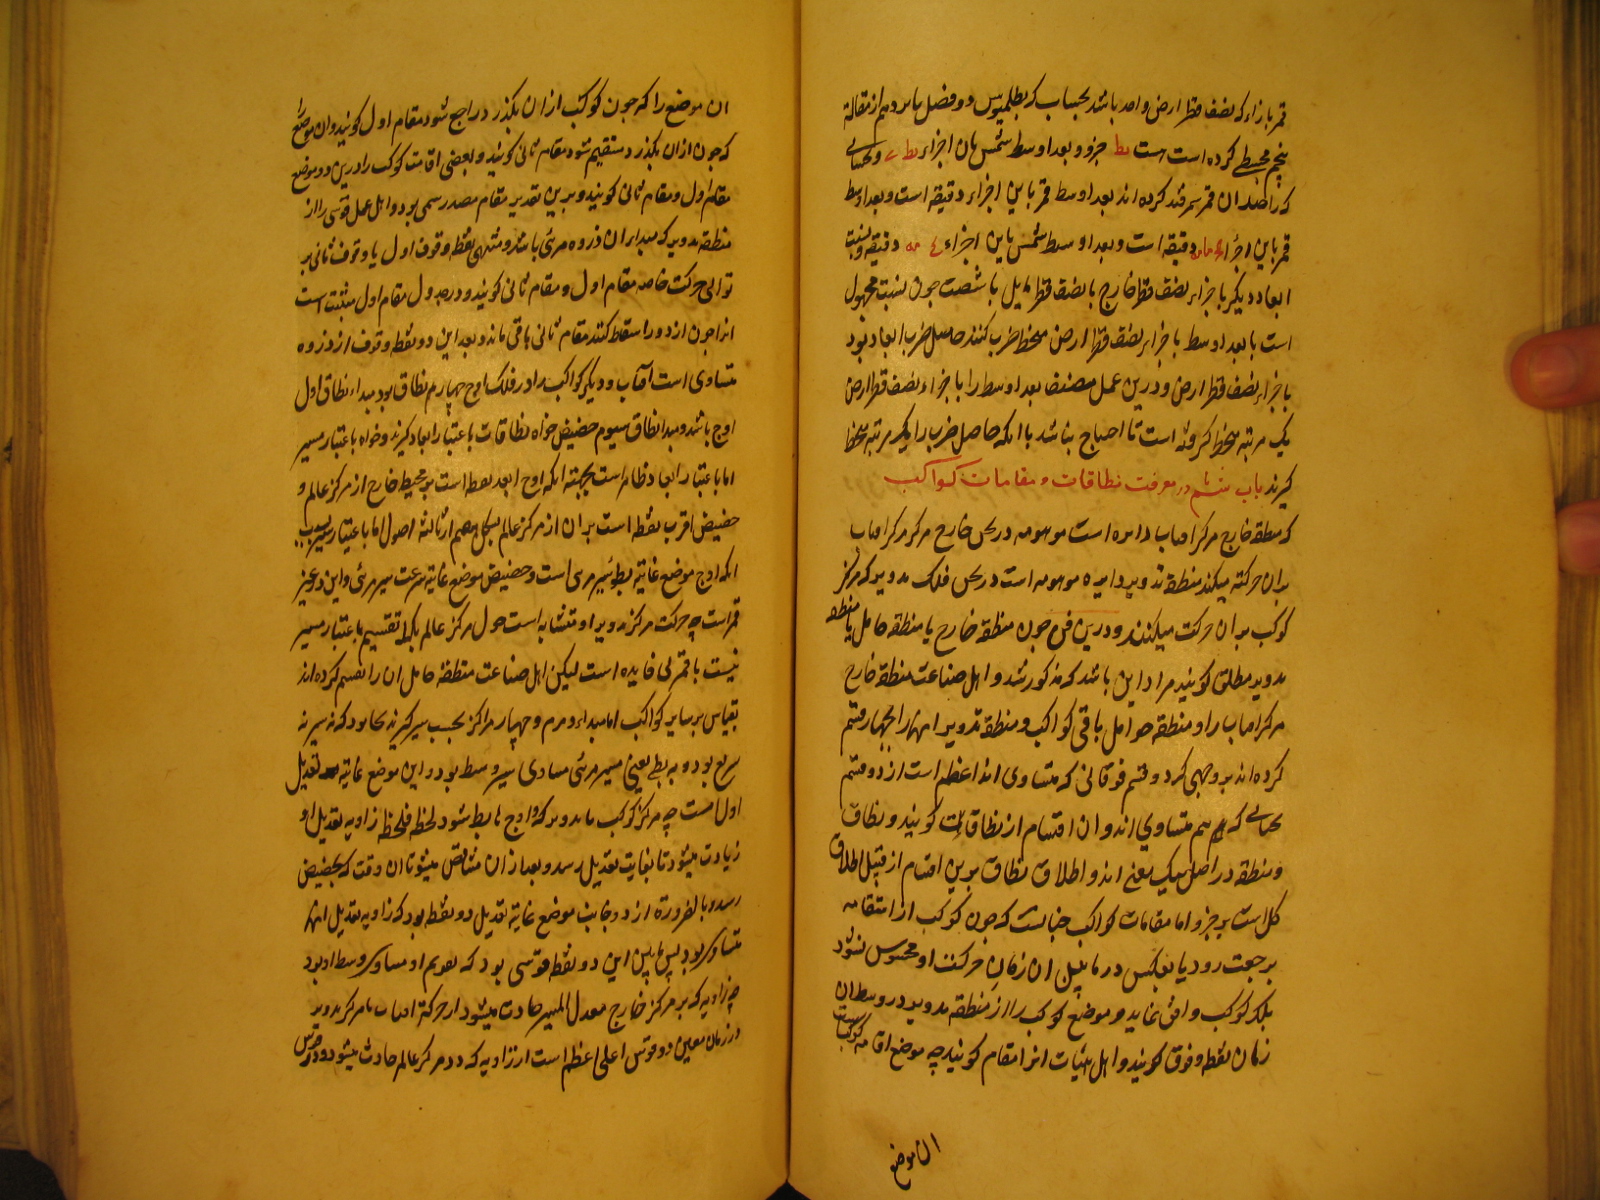 قمر بازاء که نصف قطر ارض واحد باشد بحساب که بطلمیوس دو فصل یازدهم از مقالهٔ
پنجم مجسطی کرده است هست نط جزو و بعد اوسط شمس بان اجزاء و بحسابی
که راصدان سمرقند کرده اند بعد اوسط قمر باین اجزاء دقیقه است و بعد اوسط
قمر باین اجزاء دقیقه است و بعد اوسط شمس باین اجزاء دقیقه و نسبت
ابعاد دیگر باجزاء نصف قطر خارج یا نصف قطر مایل با شصت چون نسبت مجهول
است با بعد اوسط باجزاء نصف قطر ارض منحط ضرب کنند حاصل ضرب ابعاد بود
باجزاء نصف قطر ارض و درین عمل مصنف بعد اوسط را باجزاء نصف قطر ارض
یک مرتبه منحط گرفته است تا احتیاج نباشد بانکه حاصل ضرب را یکمرتبه منحط
گیرند باب ششم در معرفت نطاقات و مقامات کواکب
که منطقه خارج مرکز افتاب دایره است موهومه در ثخن خارج مرکز که مرکز افتاب
بران حرکت میکند و منطقه تدویر دایره موهومه است در ثخن فلک تدویر که مرکز
کوکب بران حرکت میکند و درین فن چون منطقه خارج یا منطقه حامل یا منطقه
تدویر مطلق گویند مراد این باشد که مذکور شد و اهل صناعت منطقه خارج
مرکز افتاب را و منطقه حوامل باقی کواکب و منطقه تدویر انها را بچهار قسم
کرده اند بر وجهی که دو قسم فوقانی که متساوی اند اعظم است از دو قسم
تحتانی که هم متساوی اند و ان اقسام را نطاقات گویند و نطاق
و منطقه در اصل بیک معنی اند و اطلاق نطاق برین اقسام از قبیل اطلاق
کل است بر جزو اما مقامات کواکب چنانست که چون کوکب از استقامه
برجعت رود یا بعکس در مابین ان زمان حرکت او محسوس نشود
بلکه کوکب واقف نماید و موضع کوکب را از منطقه تدویر در وسط ان
زمان نقطه وقوف گویند و اهل هیات انرا مقام گویند چه موضع اقامه کوکبست
ان موضع
ان موضع را که چون کوکب از ان بگذرد راجع شود مقام اول گویند و ان موضع را
که چون ازان بگذرد مستقیم شود مقام ثانی گویند و بعضی اقامت کوکب را درین دو موضع
مقام اول و مقام ثانی گویند و برین تقدیر مقام مصدر میمی بود و اهل عمل قوسی را از
منطقه تدویر که مبداء ان ذروه مرئی باشد و منتهی نقطه وقوف اول یا وقوف ثانی بر
توالی حرکت خاصه مقام اول و مقام ثانی گویند و در جدول مقام اول مثبت است
انرا چون از دور اسقاط کنند مقام ثانی باقی ماند و بعد این دو نقطه وقوف از ذروه
متساوی است افتاب و دیگر کواکب را در فلک اوج چهارم نطاق بود مبداء نطاق اول
اوج باشد و مبدا نطاق سیوم حضیض خواه نطاقات باعتبار ابعاد گیرند و خواه باعتبار مسیر
اما باعتبار ابعاد ظاهر است بجهته انکه اوج ابعد نقطه است بر محیط خارج از مرکز عالم و
حضیض اقرب نقطه است بران از مرکز عالم از ثالثه اصول اما باعتبار مسیر
انکه اوج موضع غایة بطوء سیر مرئی است و حضیض موضع غایة سرعت سیر مرئی و این در غیر
قمر است چه حرکت مرکز تدویر او متشابه است حول مرکز عالم بلکه تقسیم باعتبار مسیر
نیست با قمر بی فایده است لیکن اهل صناعت منطقه حامل ان را تقسیم کرده اند
بقیاس بر سایر کواکب اما مبداء دوم و چهارم اگر بحسب سیر گیرند بجایی بود که نه سیر نه
سریع بود و نه بطی یعنی مسیر مرئی مساوی سیر وسط بود و این موضع غایة تعدیل
اول است چه مرکز کوکب یا تدویر که از اوج هابط شود لحظه فلحظه زاویه تعدیل او
زیادت میشود تا بغایت تعدیل رسد و بعد از ان متناقص میشود تا ان وقت که بحضیض
رسد و بالضرورة از دو جانب موضع غایة تعدیل دو نقطه بود که زاویه تعدیل انها
متساوی بود پس مابین این دو نقطه قوسی بود که تقویم او مساوی وسط او بود
چه زاویه که بر مرکز خارج معدل المسیر حادث میشود از حرکة افتاب یا مرکز تدویر
در زمان معین در قوس اعلی اعظم است از زاویه که در مرکز عالم حادث میشود و در قوس